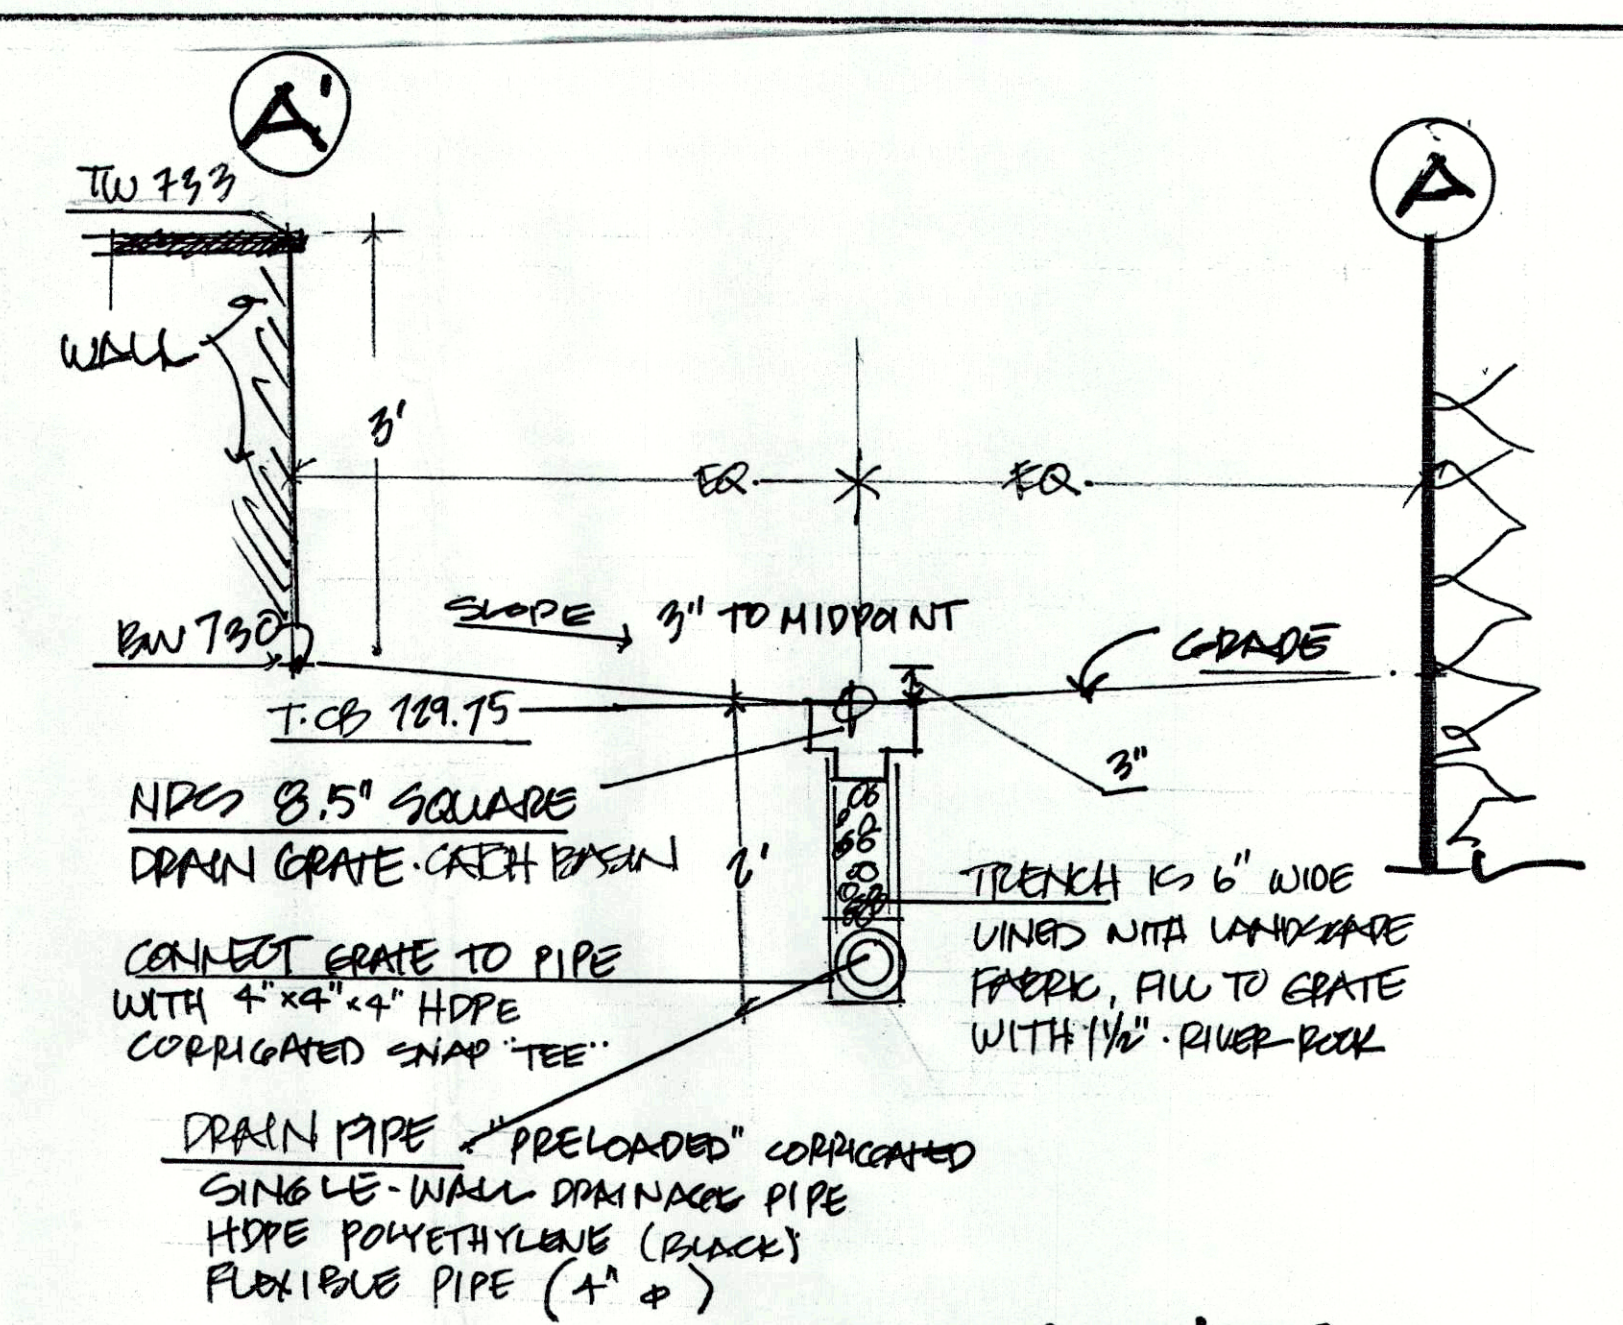 A'
A
TW 733
WALL
3'
EQ.
EQ.
BW 730
SLOPE 3" TO MIDPOINT
GRADE
T.CB 729.75
3"
NDS 8.5" SQUARE
DRAIN GRATE. CATCH BASIN
2'
TRENCH IS 6" WIDE
LINED WITH LANDSCAPE
FABRIC, FILL TO GRATE
WITH 1 1/2" . RIVER ROCK
CONNECT GRATE TO PIPE
WITH 4"x4"x4" HDPE
CORRIGATED SNAP "TEE"
DRAIN PIPE "PRELOADED" CORRIGATED
SINGLE-WALL DRAINAGE PIPE
HDPE POLYETHYLENE (BLACK)
FLEXIBLE PIPE (4" ⌀)